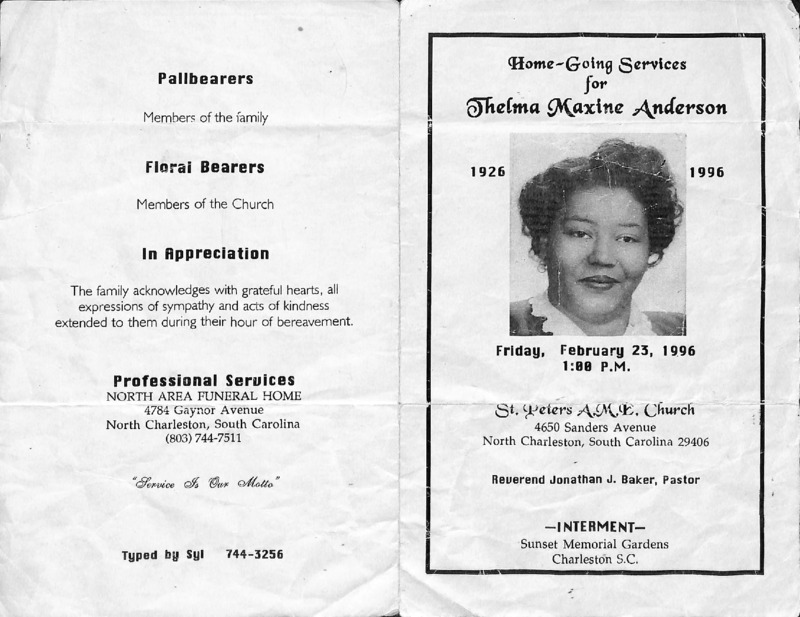 Pallbearers
Members of the family
Floral Bearers
Members of the Church
In Appreciation
The family acknowledges with grateful hearts, all
expressions of sympathy and acts of kindness
extended to them during their hour of bereavement.
Professional Services
NORTH AREA FUNERAL HOME
4784 Gaynor Avenue
North Charleston, South Carolina
(803) 744-7511
"Service Is Our Motto"
Typed by Syl 744-3256
Home-Going Services
for
Thelma Maxine Anderson
1926 1996
Friday, February 23, 1996
1:00 P.M.
St. Peters A.M.E. Church
4650 Sanders Avenue
North Charleston, South Carolina 29406
Reverend Jonathan J. Baker, Pastor
—INTERMENT—
Sunset Memorial Gardens
Charleston S.C.